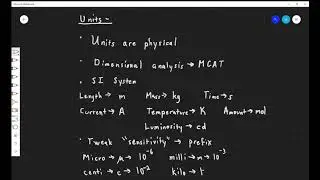 Units -
• Units are physical
• Dimensional analysis → MCAT
• SI System
Length → m Mass → kg Time → s
Current → A Temperature → K Amount → mol
Luminosity → cd
• Tweak "sensitivity" → prefix
Micro → μ → 10⁻⁶ milli → m → 10⁻³
centi → c → 10⁻² kilo → k